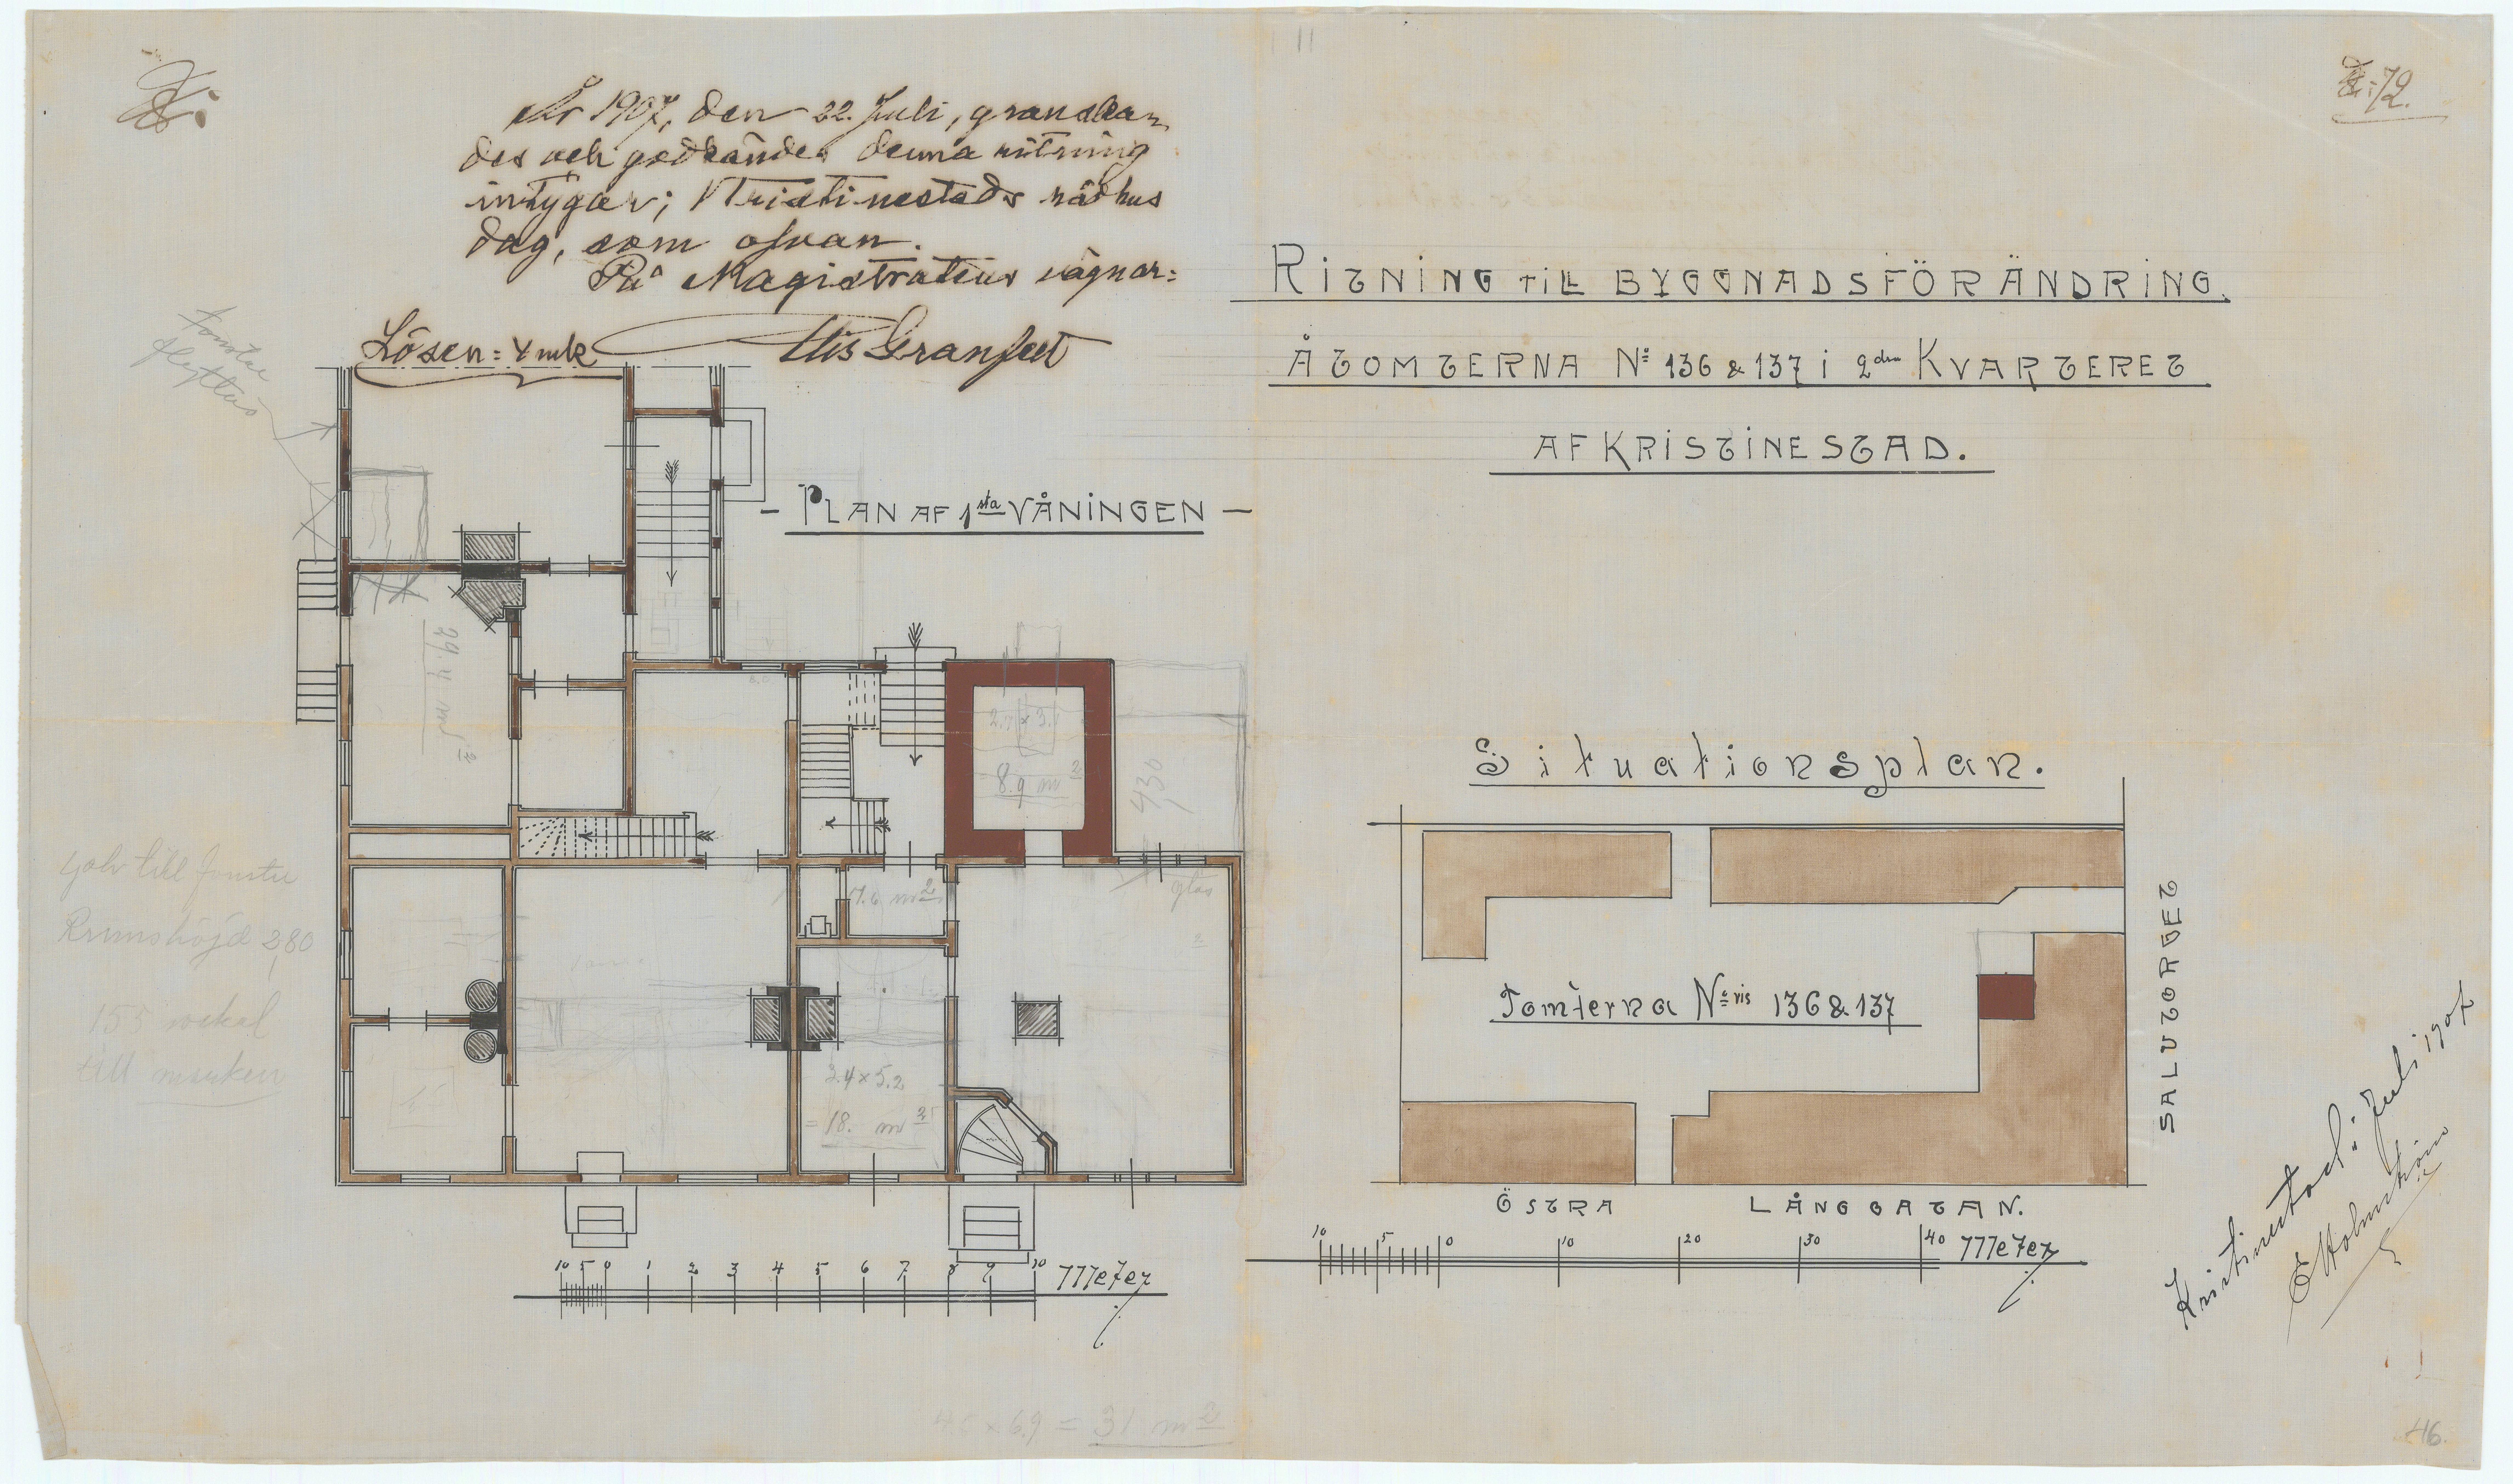 År 1907, den 22. Juli, granska-
des och godkändes denna ritning
intygar; Kristinestads rådhus
dag, som ofvan.
På Magistratens vägnar:
Lösen: 4 mk Elis Granfelt
72.
RITNING TILL BYGGNADSFÖRÄNDRING.
Å TOMTERNA No 136 & 137 i 2dra KVARTERET
AF KRISTINESTAD.
- PLAN AF 1sta VÅNINGEN -
fönster
flyttas
29.4 m2
8.9 m2
430
7.6 m2
glas
golv till fönster
Rumshöjd 2,80
155 sockel
till marken
3.4 x 5.2
= 18. m2
10 5 0 1 2 3 4 5 6 7 8 9 10 Meter
Situationsplan.
Tomterna No ris 136 & 137
SALUTORGET
ÖSTRA LÅNGGATAN.
10 5 0 10 20 30 40 Meter
Kristinestad i Juli 1907
E Holmström
6.9 = 31 m2
46.